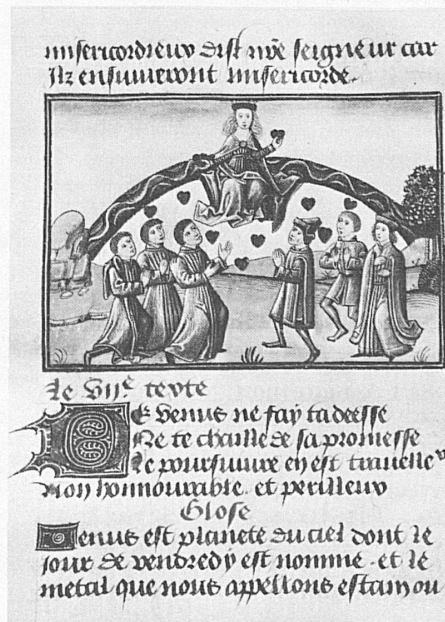 misericordieux dist nr̄e seigneur car
Ilz ensuiveront misericorde.
Le VIIe texte
De Venus ne fay ta deesse
Ne te chaille de sa promesse
Le poursuivre en est travelleux
Non honnourable. et perilleux
Glose
Venus est planete du ciel dont le
jour de vendredy est nomme. et le
metal que nous appellons estain ou